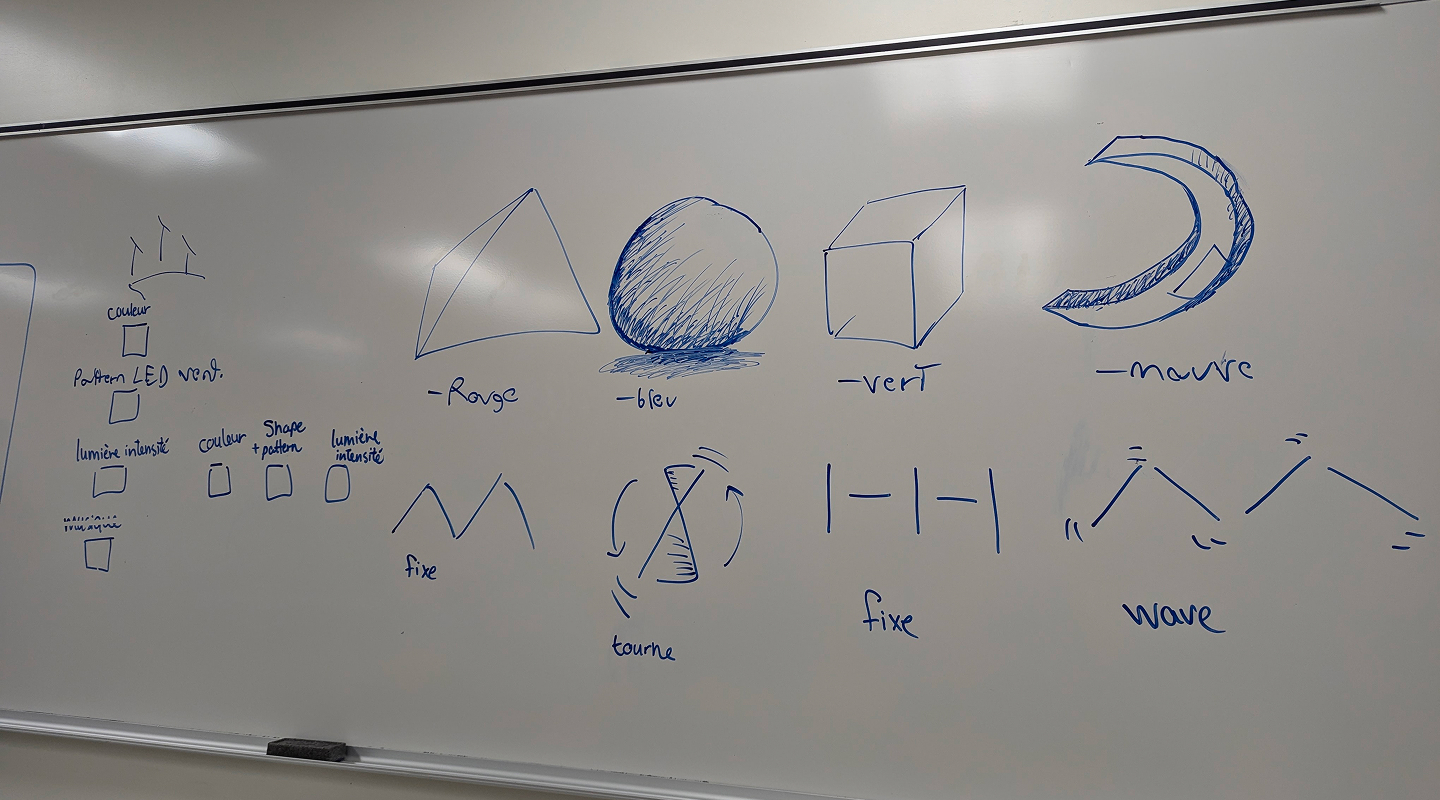 couleur
Pattern LED vent.
lumière intensité
musique
couleur
Shape
+ pattern
lumière
intensité
-Rouge
-bleu
-vert
-mauve
fixe
tourne
fixe
wave